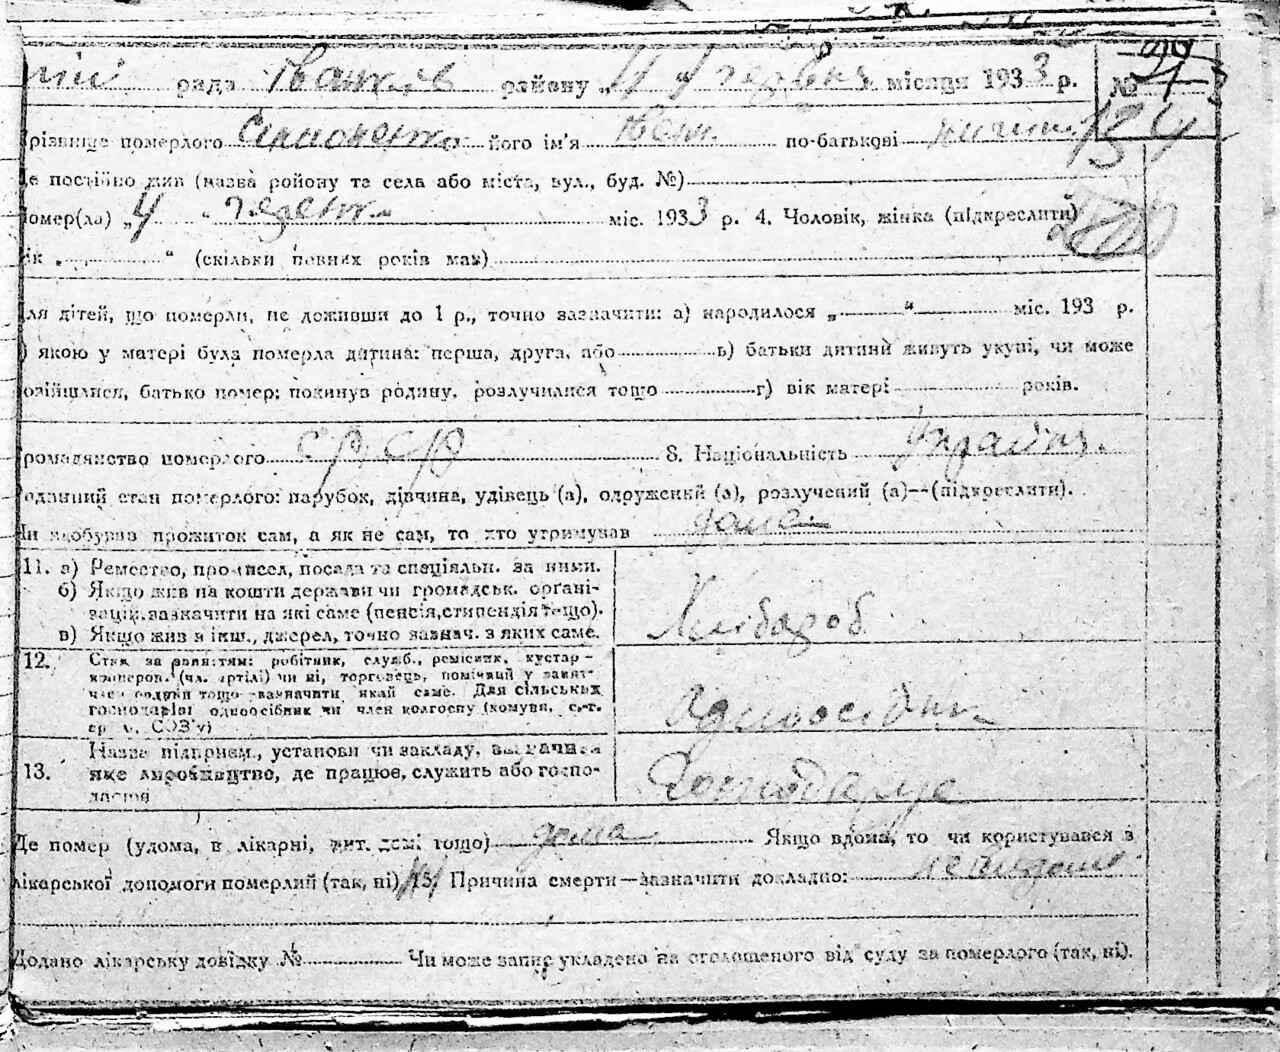 рада Іванків району „11 „ червня місяця 1933 р. №
різвище померлого його ім'я Іван по-батькові
е постійно жив (назваройону та села або міста, вул., буд. №)
омер(ла) „4 " червн. міс. 1933 р. 4. Чоловік, жінка (підкреслити)
ік „ “ (скільки повних років мав)
ля дітей, що померли, не доживши до 1 р., точно зазначити: а) народилося „ “ міс. 193 р.
) якою у матері була померла дитина: перша, друга, або в) батьки дитини живуть укупі, чи може
озійшлися, батько помер; покинув родину, розлучилися тощо г) вік матері років.
ромадянство померлого СРСР 8. Національність Україн.
оданний стан померлого: парубок, дівчина, удівець (а), одружений (а), розлучений (а)—(підкреслити).
и здобував прожиток сам, а як не сам, то хто утримував
11. а) Ремество, промисел, посада та спеціяльн. за ними.
б) Якщо жив на кошти держави чи громадськ. орґані-
зацій, зазначити на які саме (пенсія, стипендія тощо).
в) Якщо жив з інш., джерел, точно зазнач. з яких саме.
Хлібороб
12. Стан за заняттям: робітник, служб., ремісник, кустар-
кооперов. (чл. артілі) чи ні, торговець, помічний у занят.
член родини тощо зазначити який саме. Для сільських
господарів: одноосібник чи член колгоспу (комуни, с.-г.
ар СОЗ'у)
Одноосібник
13. Назва підприєм., установи чи закладу, визначив
яке виробництво, де працює, служить або госпо-
дарює
Господарює
Де помер (удома, в лікарні, жит. домі тощо) дома Якщо вдома, то чи користувався з
лікарської допомоги померлий (так, ні) 15. Причина смерти—зазначити докладно: невидомо
Додано лікарську довідку № Чи може запис укладено на оголошеного від суду за померлого (так, ні).